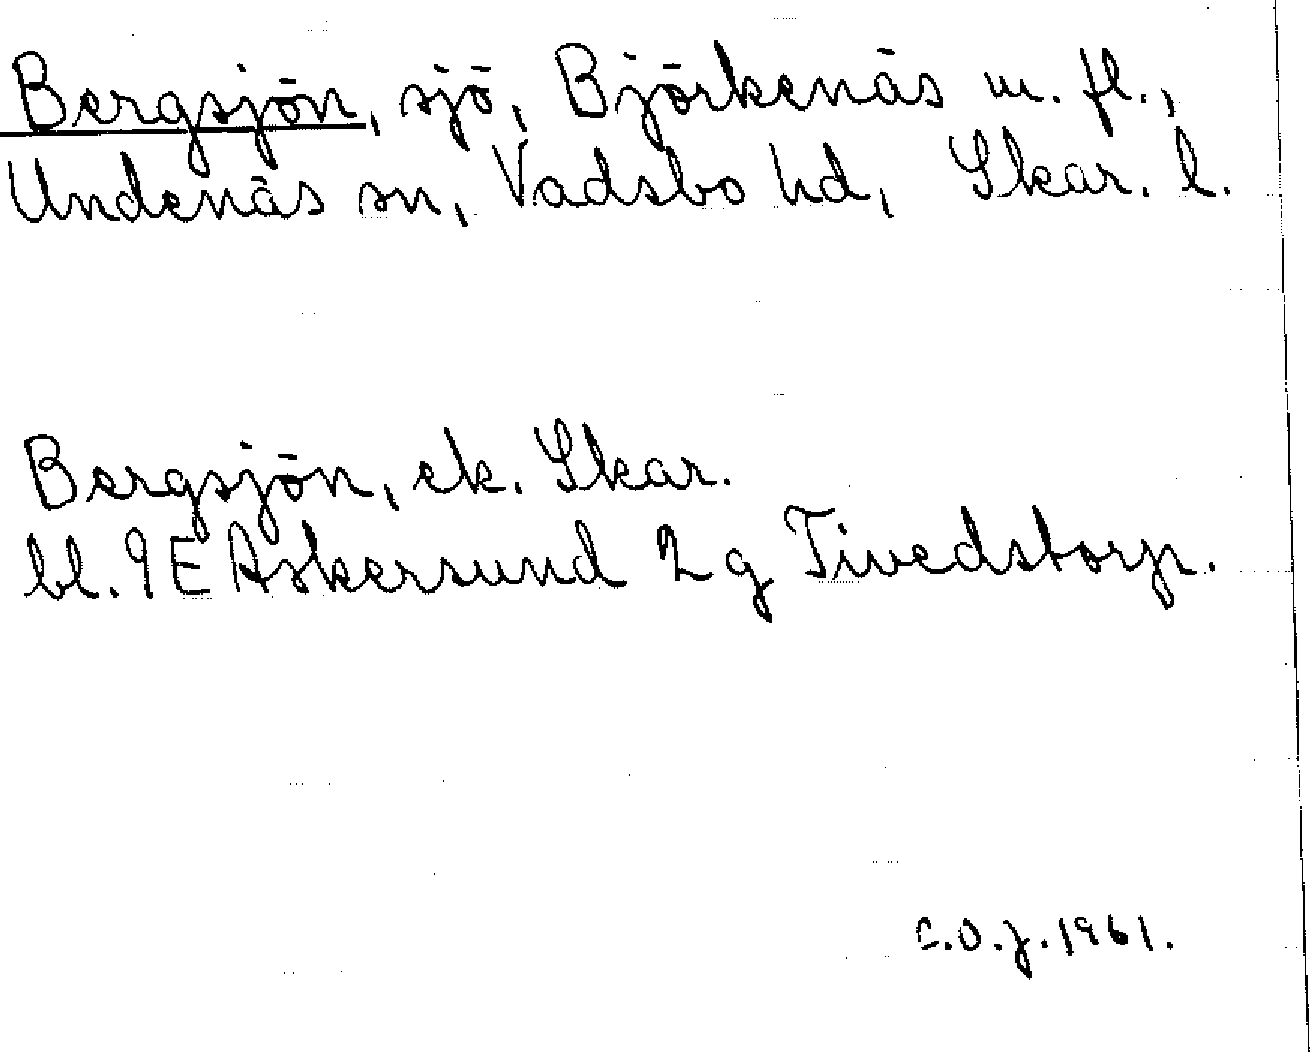 Bergsjön, sjö, Björkenäs m. fl.,
Undenäs sn, Vadsbo hd, Skar. l.
Bergsjön, ek. Skar.
bl. 9E Askersund 2g Tivedstorp.
C.O.J. 1961.